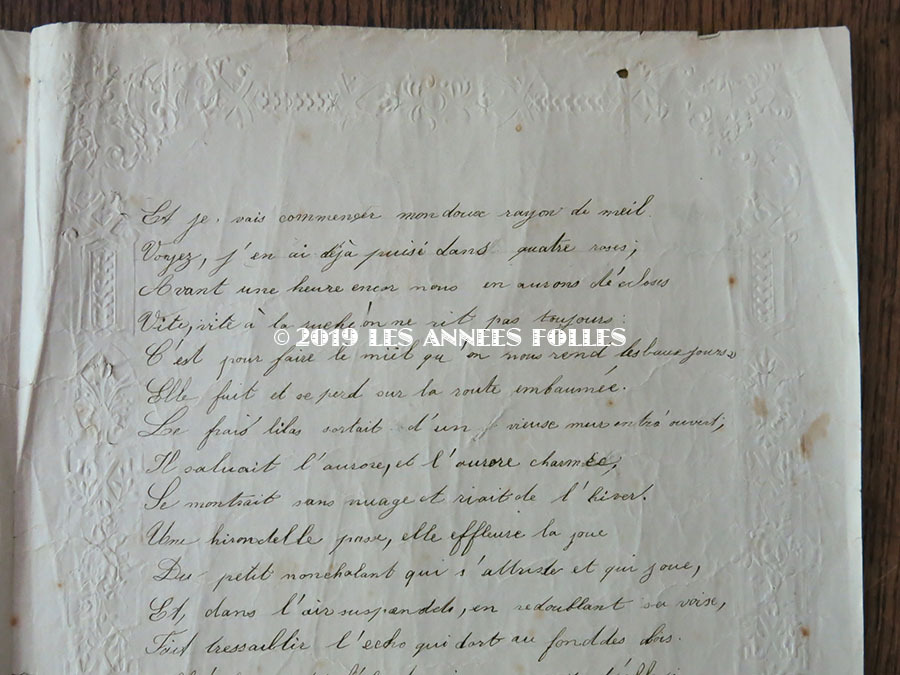 Et je vais commencer mon doux rayon de meil.
Voyez, j'en ai déjà puisé dans quatre roses;
Avant une heure encor nous en aurons d'écloses
Vite, vite à la ruche on ne rit pas toujours:
© 2019 LES ANNEES FOLLES
C'est pour faire le miel qu'on nous rend les baux jours»
Elle fuit et se perd sur la route embaumée.
Le frais lilas sortait d'un vieuse mur entr'ouvert,
Il saluait l'aurore, et l'aurore charmée,
Se montrait sans nuage et riait de l'hiver.
Une hirondelle passe, elle effleure la joue
Du petit nonchalant qui s'attriste et qui joue,
Et, dans l'air suspendds, en redoublant sa voise,
Fait tressaiblir l'echo qui dort au fond des bois.